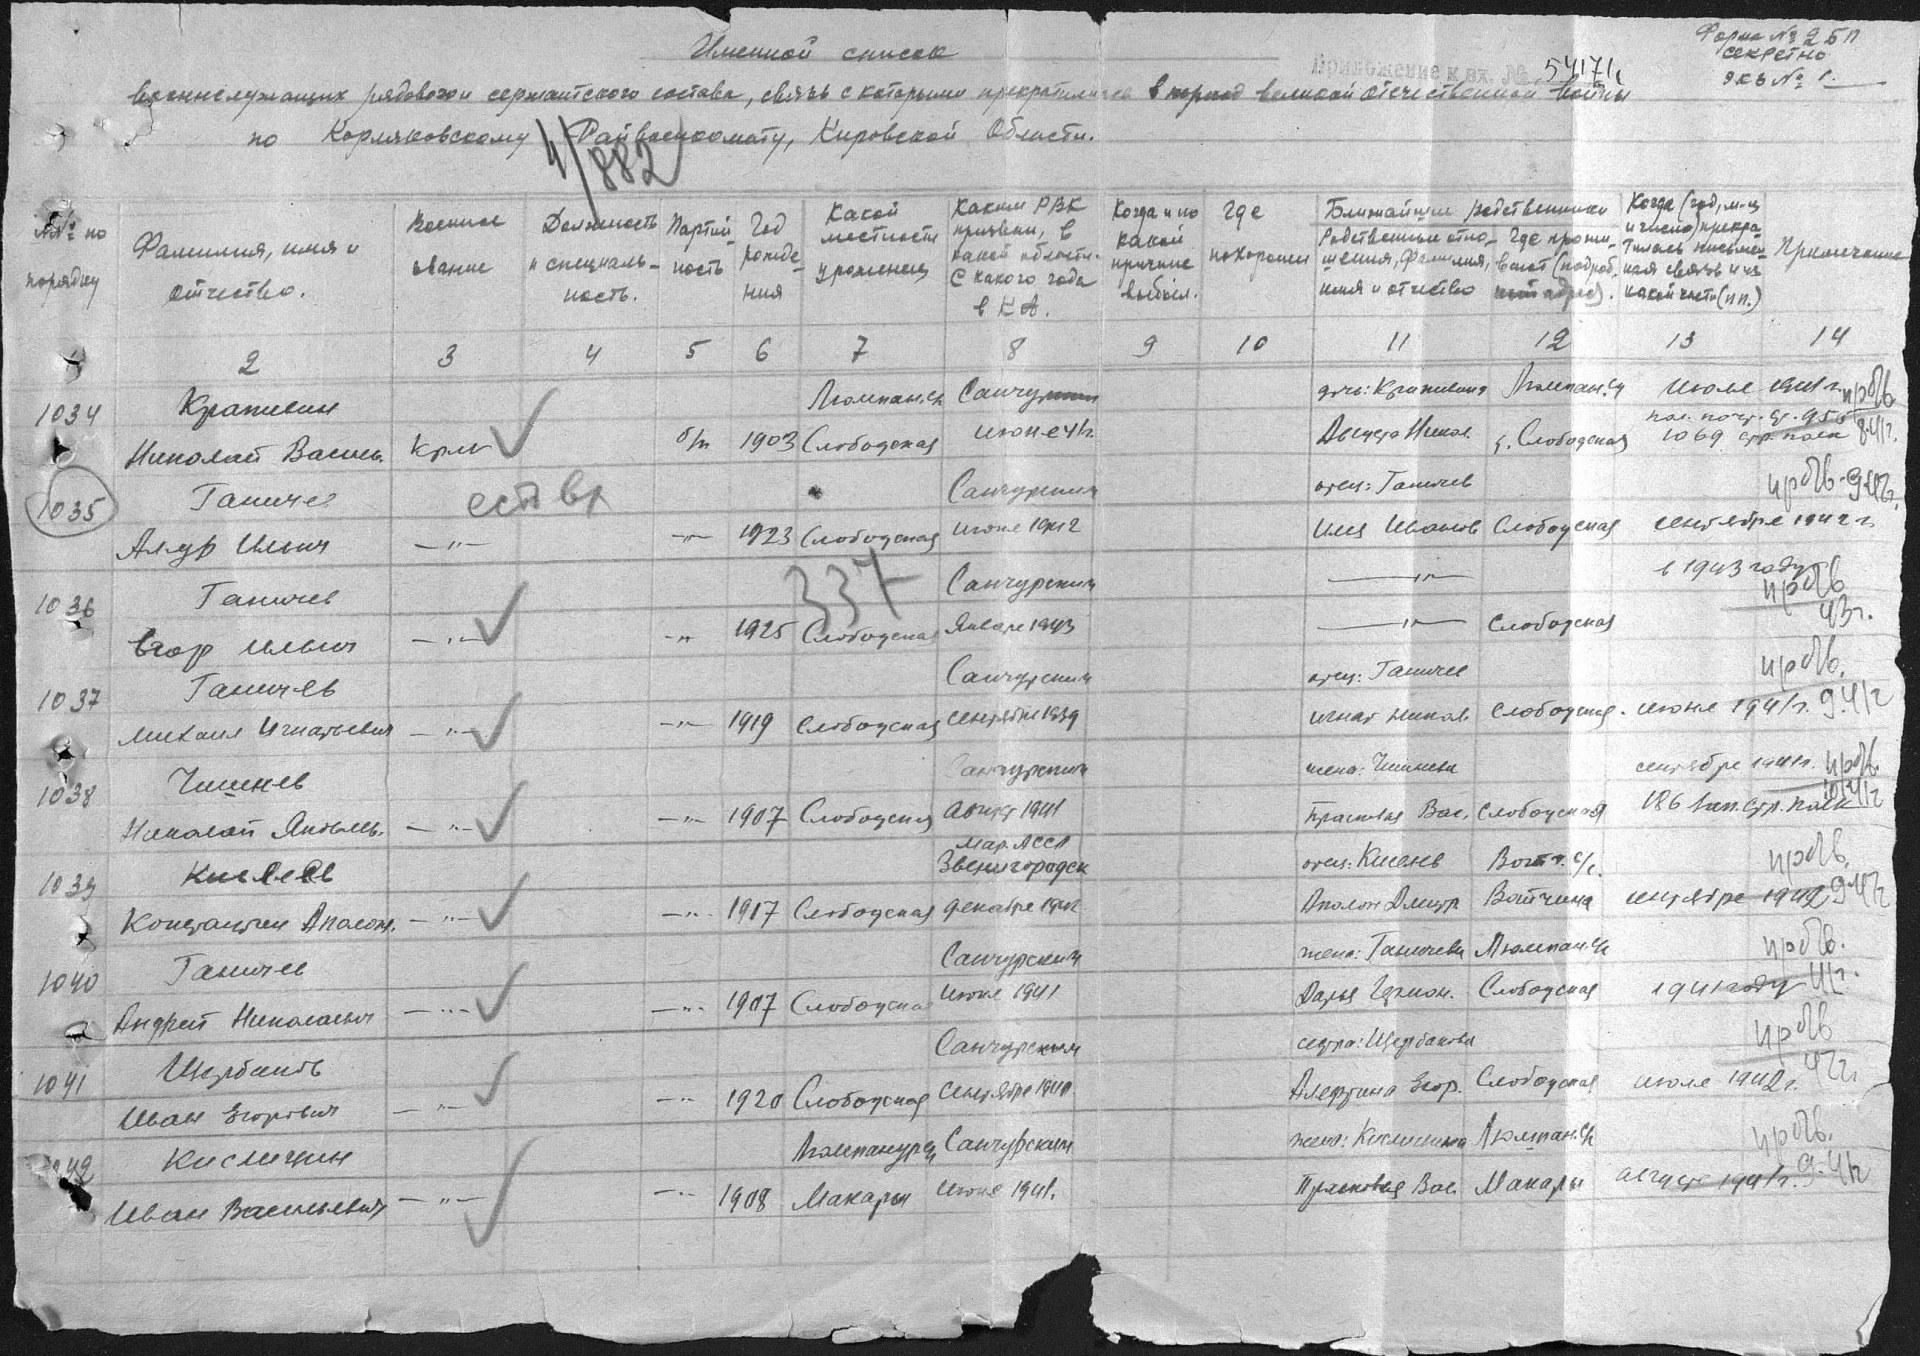 Форма № 2 БП
Секретно
экз № 1.
Именной список
Приложение к вх. № 54171с
военнослужащих рядового и сержантского состава, связь с которыми прекратилась в период великой отечественной войны
по Корляковскому Райвоенкомату, Кировской Области.
4/882
№№ по порядку
Фамилия, имя и отчество.
Военное звание
Должность и специальность.
Партийность
Год рождения
Какой местности уроженец
Каким РВК призван, в какой области. С какого года в КА.
Когда и по какой причине выбыл.
Где похоронен
Ближайшие родственники
Родственные отношения, фамилия, имя и отчество
Где проживают (подробный адрес).
Когда (год, м-ц и число) прекратилась письменная связь и из какой части (п.п.)
Примечание
2 3 4 5 6 7 8 9 10 11 12 13 14
1034 Крапивин Люмпан.с/с Санчурский дочь: Крапивина Люмпан.с/с июле 1941 г. пр б/в
Николай Василь. Кр-ц б/п 1903 Слободская июне 41г. Августа Никол. д. Слободская 1069 стр. полк 8.41г.
1035 Ганичев есть вх Санчурский отец: Ганичев пр б/в 9.42г.
Ал-др Ильич —"— —"— 1923 Слободская июне 1942 Илья Иванов Слободская сентябре 1942 г.
337
1036 Ганичев Санчурский —"— в 1943 году пр б/в
Егор Ильич —"— —"— 1925 Слободская Январе 1943 —"— Слободская 43г.
1037 Ганичев Санчурский отец: Ганичев пр б/в.
Михаил Игнатьевич —"— —"— 1919 Слободская Сентябре 1939 Игнат Никол. Слободская. июне 1941г. 9.41г
1038 Чешнев Санчурский жена: Чешнева сентябре 1941г. пр б/в.
Николай Яковль. —"— —"— 1907 Слободская Август 1941 Прасковья Вас. Слободская 186 зап. стр. полк 10.41г
Мар. АССР
1039 Киселев Звенигородск отец: Киселев Вотч. с/с. пр б/в.
Константин Аполон. —"— —"— 1917 Слободская декабре Аполон Дмитр Вотчина сентябре 1942 9.42г
1040 Ганичев Санчурский жена: Ганичева Люмпан.с/с пр б/в.
Андрей Николаевич —"— —"— 1907 Слободская Июне 1941 Дарья Слободская 1941 году 41г.
1041 Щербаков Санчурским сестра: Щербакова пр б/в
Иван Егорович —"— —"— 1920 Слободская Сентябре 1940 Алевтина Егор. Слободская июле 1942г. 42г
1042 Кислицин Люмпанурск Санчурским жена: Кислицина Люмпан.с/с пр б/в.
Иван Васильевич —"— —"— 1908 Макары Июне 1941. Прасковья Вас. Макары августе 1941г. 9.41г